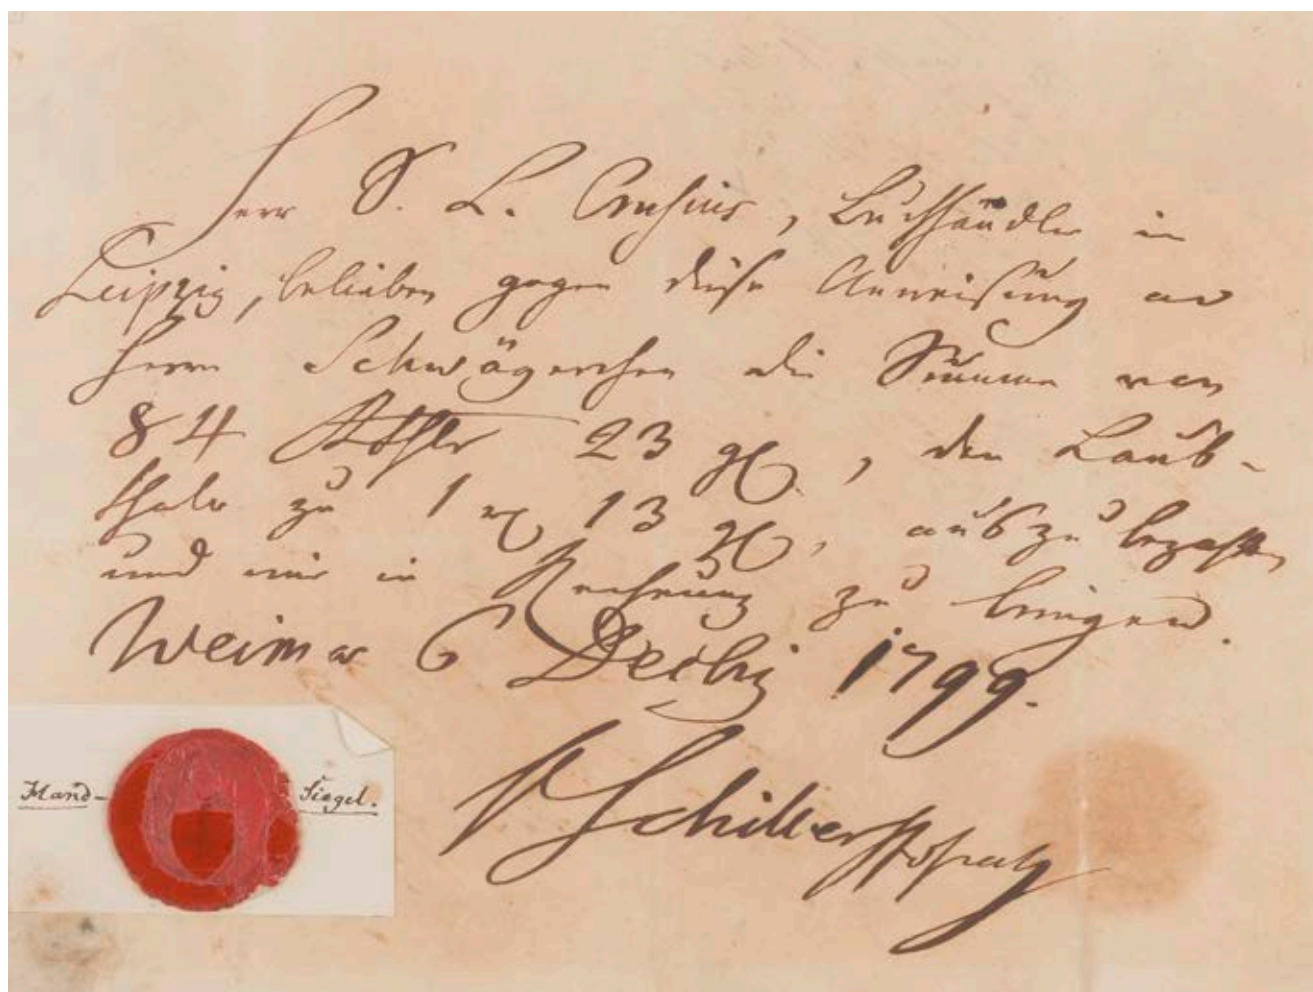 Herr S. L. Crusius, Buchhändler in
Leipzig, belieben gegen diese Anweisung an
Herrn Schwägrichen die Summe von
84 Rthlr 23 gr, den Laub-
thaler zu 1 rt 13 gr, auszubezahlen
und mir in Rechnung zu bringen.
Weimar 6 Decbr 1799.
Schiller
Hand-Siegel.